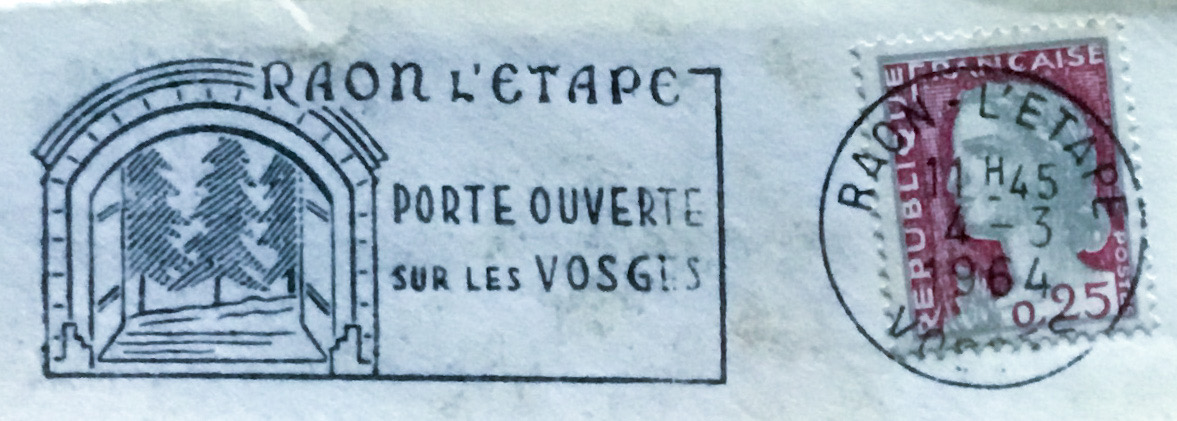 RAON L'ETAPE
PORTE OUVERTE
SUR LES VOSGES
REPUBLIQUE FRANÇAISE
POSTES
0,25
RAON-L'ETAPE
11H45
4-3
1964
VOSGES